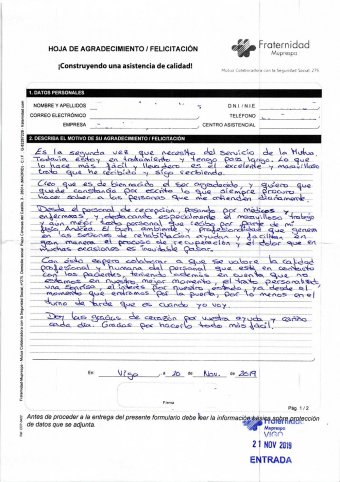 HOJA DE AGRADECIMIENTO / FELICITACIÓN
¡Construyendo una asistencia de calidad!
Fraternidad
Muprespa
Mutua Colaboradora con la Seguridad Social 275
1. DATOS PERSONALES
NOMBRE Y APELLIDOS
D.N.I / N.I.E
CORREO ELECTRÓNICO
TELÉFONO
EMPRESA
CENTRO ASISTENCIAL
2. DESCRIBA EL MOTIVO DE SU AGRADECIMIENTO / FELICITACIÓN
Es la segunda vez que necesito del servicio de la Mutua.
Todavía estoy en tratamiento y tengo para largo. Lo que
lo hace más fácil y llevadero es el excelente y maravilloso
trato que he recibido y sigo recibiendo.
Creo que es de biennacido el ser agradecido, y quiero que
quede constancia por escrito lo que siempre procuro
hacer saber a las personas que me atienden diariamente.
Desde el personal de recepción, pasando por médicos y
enfermeros, y destacando especialmente el maravilloso trabajo
y aún mejor trato personal que recibo por parte de mi
fisio, Andrea. El buen ambiente y profesionalidad que genera
en las sesiones de rehabilitación ayudan y facilitan en
gran manera el proceso de recuperación y el dolor que en
muchas ocasiones es inevitable pasar.
Con ésto espero colaborar a que se valore la calidad
profesional y humana del personal que está en contacto
con los pacientes, teniendo además en cuenta que no
estamos en nuestro mejor momento, el trato personalizado,
una sonrisa, el interés por nuestro estado, ya desde el
momento que entramos por la puerta, por lo menos en el
turno de tarde que es cuando yo voy.
Doy las gracias de corazón por vuestra ayuda y cariño
cada día. Gracias por hacerlo todo más fácil.
En Vigo, a 20 de Nov. de 2019
Firma
Pág. 1 / 2
Antes de proceder a la entrega del presente formulario debe leer la información básica sobre protección
de datos que se adjunta.
Fraternidad
Muprespa
VIGO
21 NOV 2019
ENTRADA